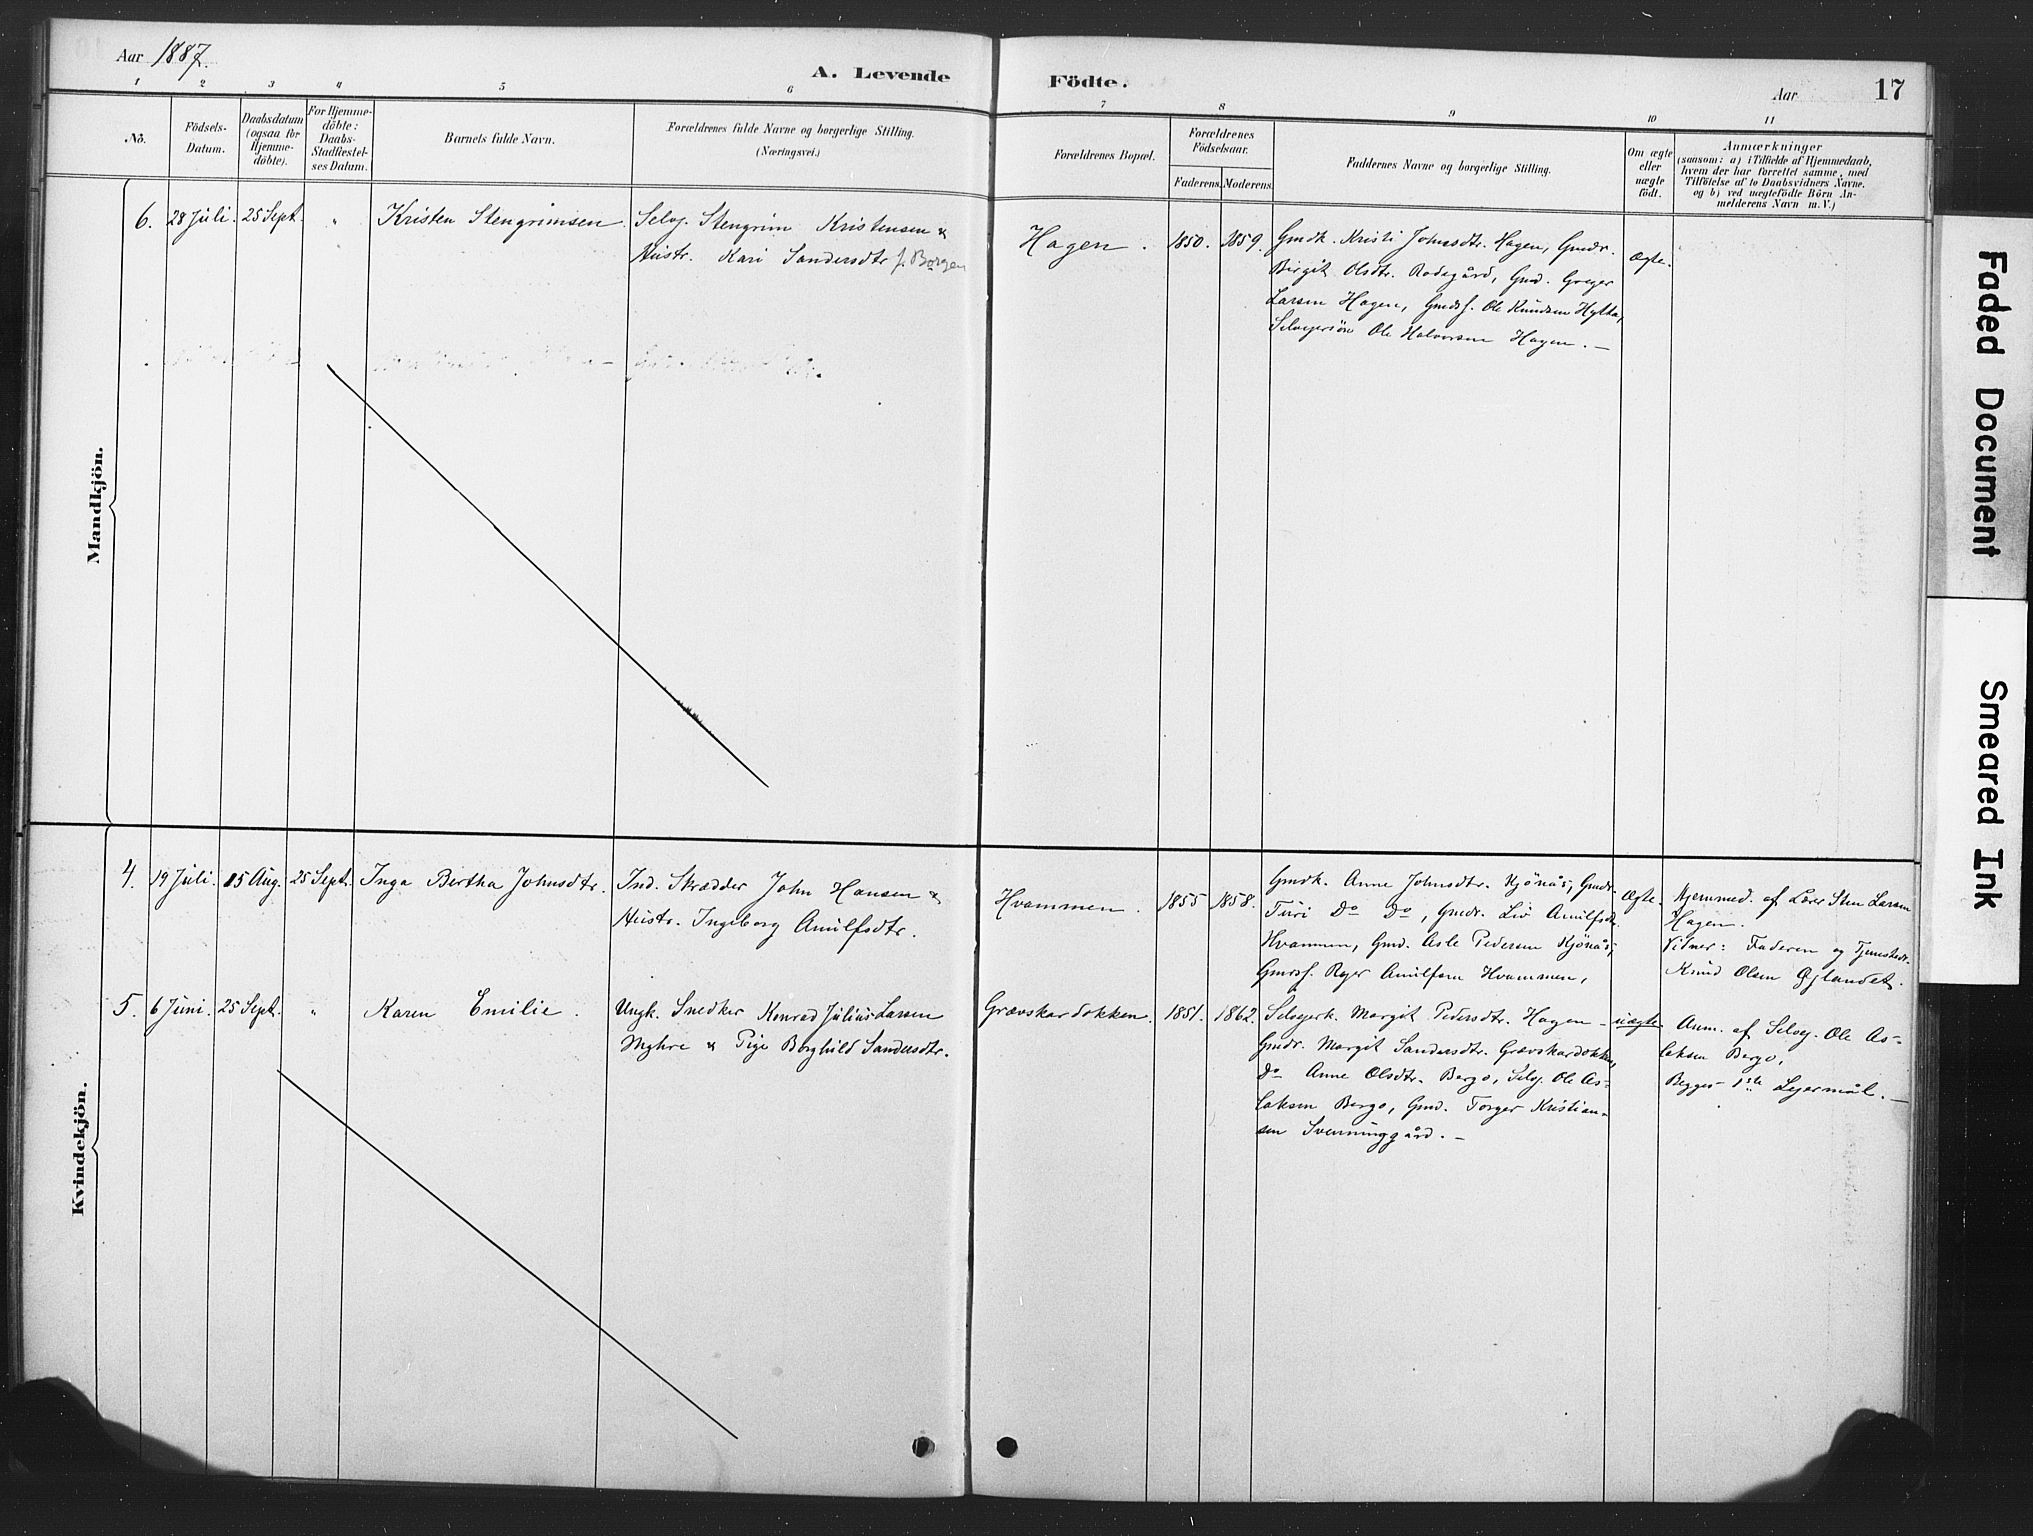 Aar 1887.
A. Levende Födte.
Aar
17
1 2 3 4 5 6 7 8 9 10 11
No.
Födsels-
Datum.
Daabsdatum
(ogsaa for
Hjemme-
döbte).
For Hjemme-
döbte:
Daabs-
Stadfæstel-
ses Datum.
Barnets fulde Navn.
Forældrenes fulde Navne og borgerlige Stilling.
(Næringsvei.)
Forældrenes Bopæl.
Forældrenes
Födselsaar.
Faderens. Moderens.
Faddernes Navne og borgerlige Stilling.
Om ægte
eller
uægte
födt.
Anmærkninger
(saasom: a) i Tilfælde af Hjemmedaab,
hvem der har forrettet samme, med
Tilföielse af to Daabsvidners Navne.
og b) ved uægtefödte Börn An-
melderens Navn m. V.)
Mandkjön.
6. 28 Juli. 25 Sept. " Kristen Stengrimsen.
Selvej. Stengrim Kristensen &
Hustr. Kari Sandersdtr f. Borgen
Hagen. 1850. 1859.
Gmdk. Kristi Johnsdtr. Hagen, Gmdr.
Birgit Olsdtr. Rodegård, Gmd. Greger
Larsen Hagen, Gmdsf. Ole Knudsen Hytta,
Selvejersön Ole Halvorsen Hagen. —
Ægte.
Kvindekjön.
4. 19 Juli. 15 Aug. 25 Sept. Inga Birtha Johnsdtr.
Ind. Skrædder John Hansen &
Hustr. Ingeborg Arnulfsdtr.
Hvammen. 1855 1858.
Gmdk. Anne Johnsdtr. Kjönås, Gmdr.
Turi Do Do, Gmdr. Liv Arnulfsdtr.
Hvammen, Gmd. Asle Pedersen Kjönås,
Gmdsf. Roger Arnulfsen Hvammen,
Ægte.
Hjemmed. af Lærer Sten Larsen
Hagen.
Vidner: Faderen og Tjenstedr.
Knud Olsen Øjlandet.
5. 6 Juni. 25 Sept. " Karen Emilie.
Ungk. Snedker Konrad Julius Larsen
Myhre & Pige Borghild Sandersdtr.
Grævskardokken. 1851. 1862.
Selvejerk. Margit Pedersdtr. Hagen —
Gmdr. Margit Sandersdtr. Grævskardokken,
Do Anne Olsdtr. Bergo, Selvej. Ole As-
laksen Bergo, Gmd. Torger Kristian-
sen Svenninggård. —
uægte.
Anm. af Selvej. Ole As-
laksen Bergo,
Begges 1ste Lejermål. —
Faded Document
Smeared Ink